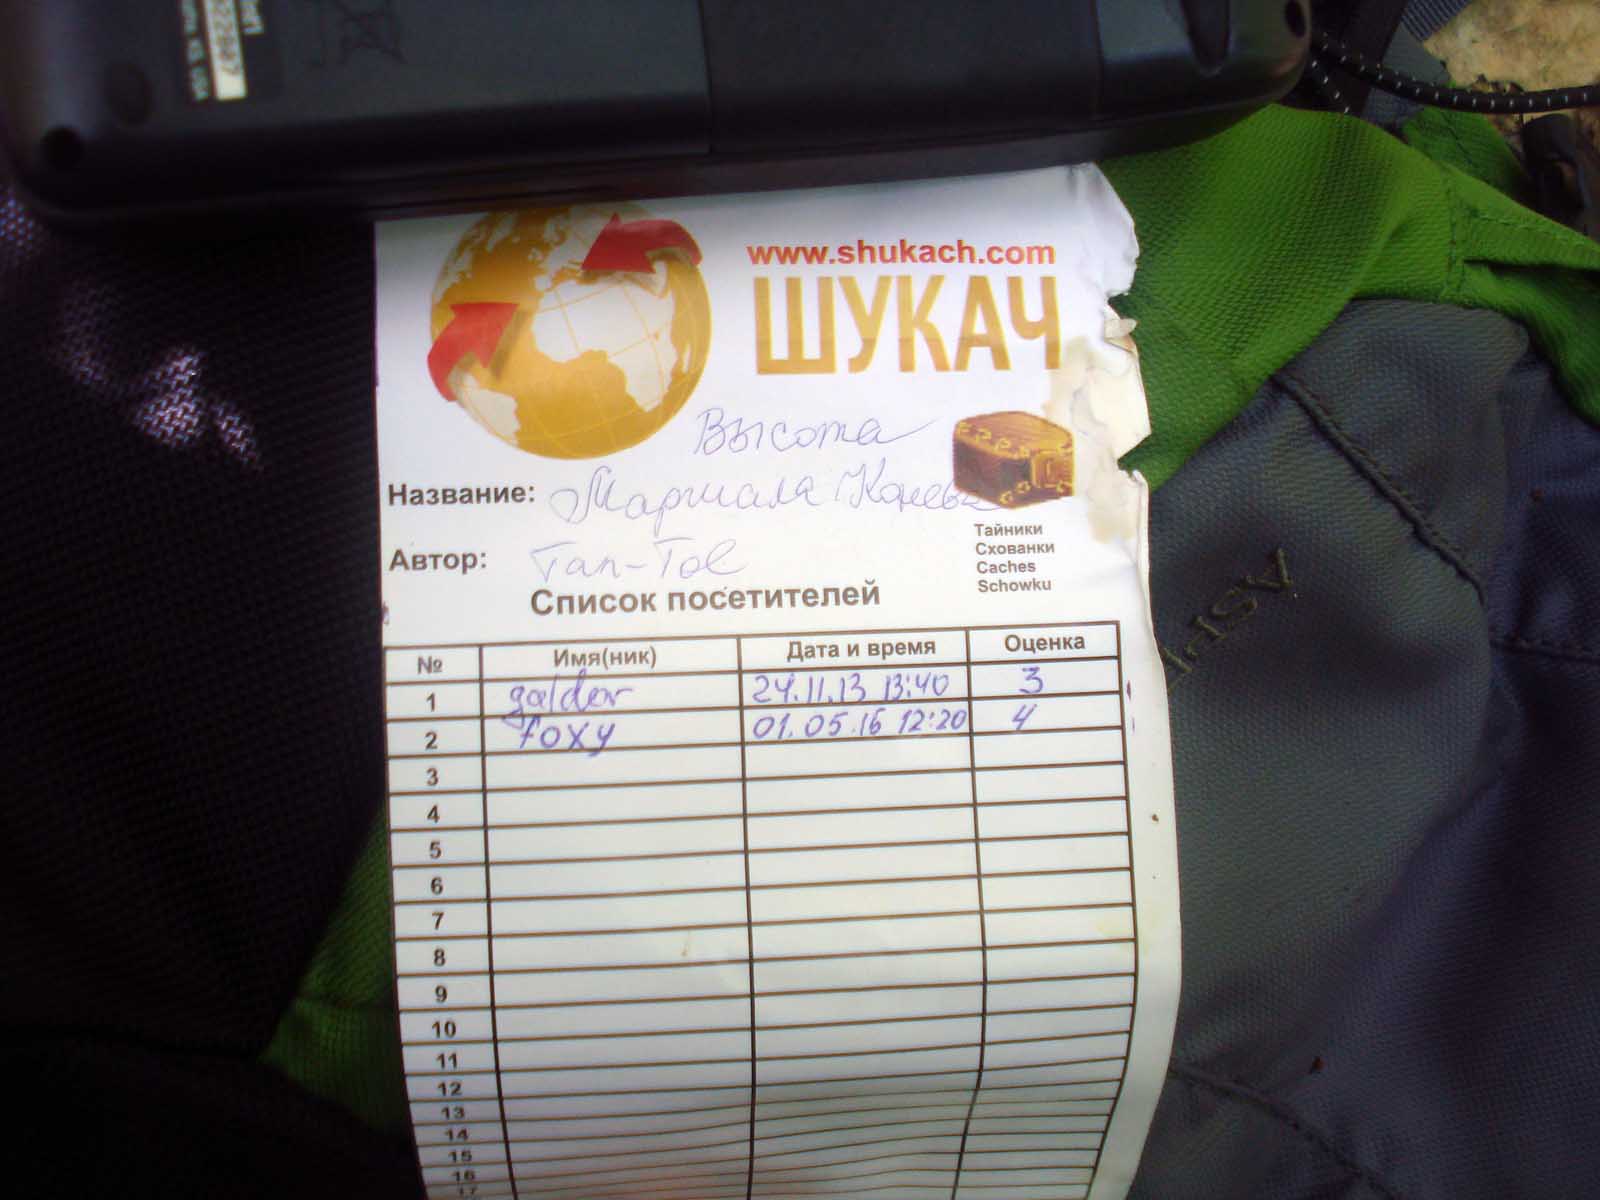 www.shukach.com
ШУКАЧ
Высота
Название: Маршала Конева
Автор: Tan-Tol
Тайники
Схованки
Caches
Schowku
Список посетителей
№ Имя(ник) Дата и время Оценка
1 galdor 24.11.13 13:40 3
2 foxy 01.05.16 12:20 4
3
4
5
6
7
8
9
10
11
12
13
14
15
16
17